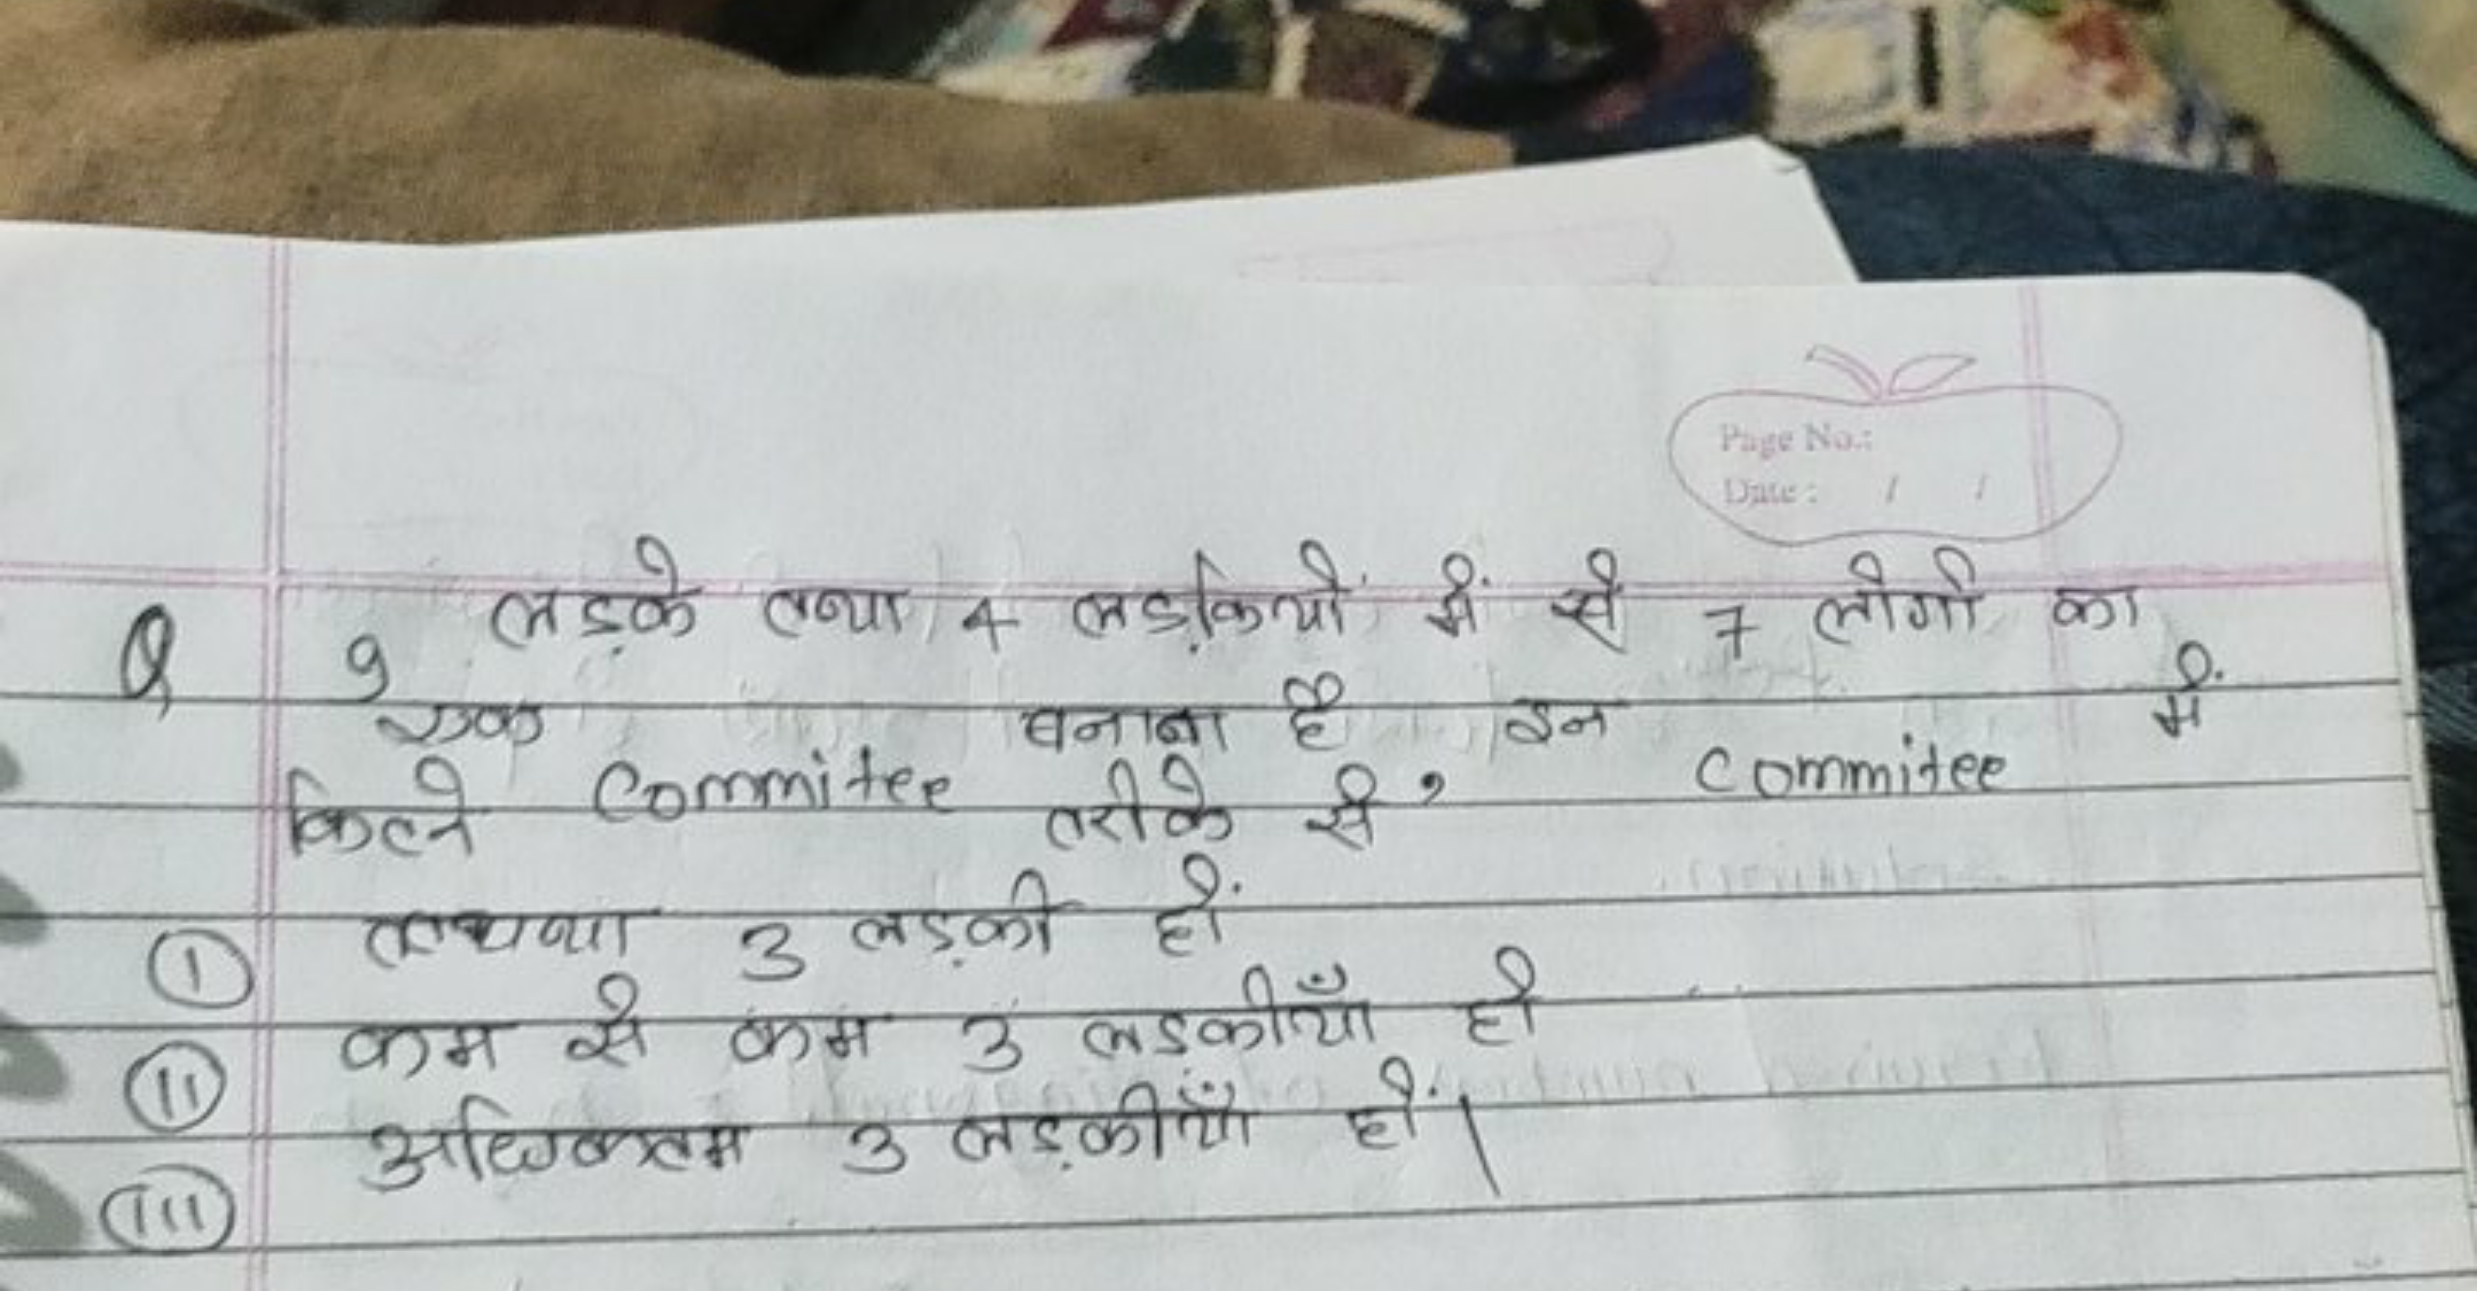 Page No.:
Date : / /
Q 9 लड़के तथा 4 लड़कियों में से 7 लोगो का
एक Commitee बनाना है इन Commitee में
कितने तरीके से ?
I 3 लड़की हों
II कम से कम 3 लड़कीयाँ हो
III अधिकतम 3 लड़कीयाँ हों।